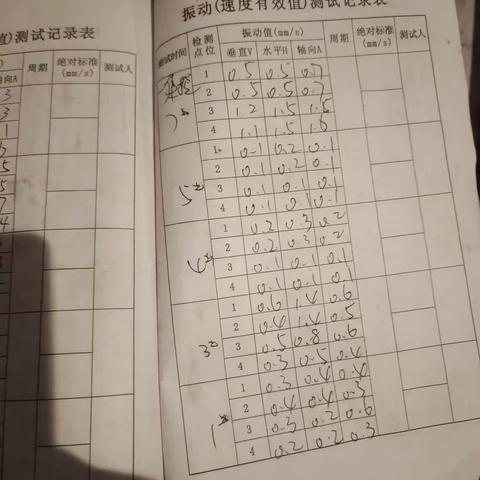 值)测试记录表
周期 绝对标准(mm/s) 测试人
轴向A
振动(速度有效值)测试记录表
测试时间 检测点位 振动值(mm/s) 周期 绝对标准(mm/s) 测试人
垂直V 水平H 轴向A
1 0.5 0.5 0.7
2 0.5 0.5 0.7
7# 3 1.2 1.5 1.5
4 1.1 1.5 1.6
1 0.1 0.2 0.1
2 0.1 0.2 0.1
5# 3 0.1 0.1 0.1
4 0.1 0.1 0.1
1 0.2 0.3 0.2
2 0.2 0.3 0.2
4# 3 0.1 0.1 0.1
4 0.1 0.1 0.1
1 0.6 1.4 0.6
2 0.4 1.4 0.5
3# 3 0.5 0.8 0.6
4 0.3 0.5 0.4
1 0.3 0.4 0.4
2 0.4 0.4 0.3
1# 3 0.3 0.2 0.6
4 0.2 0.2 0.3